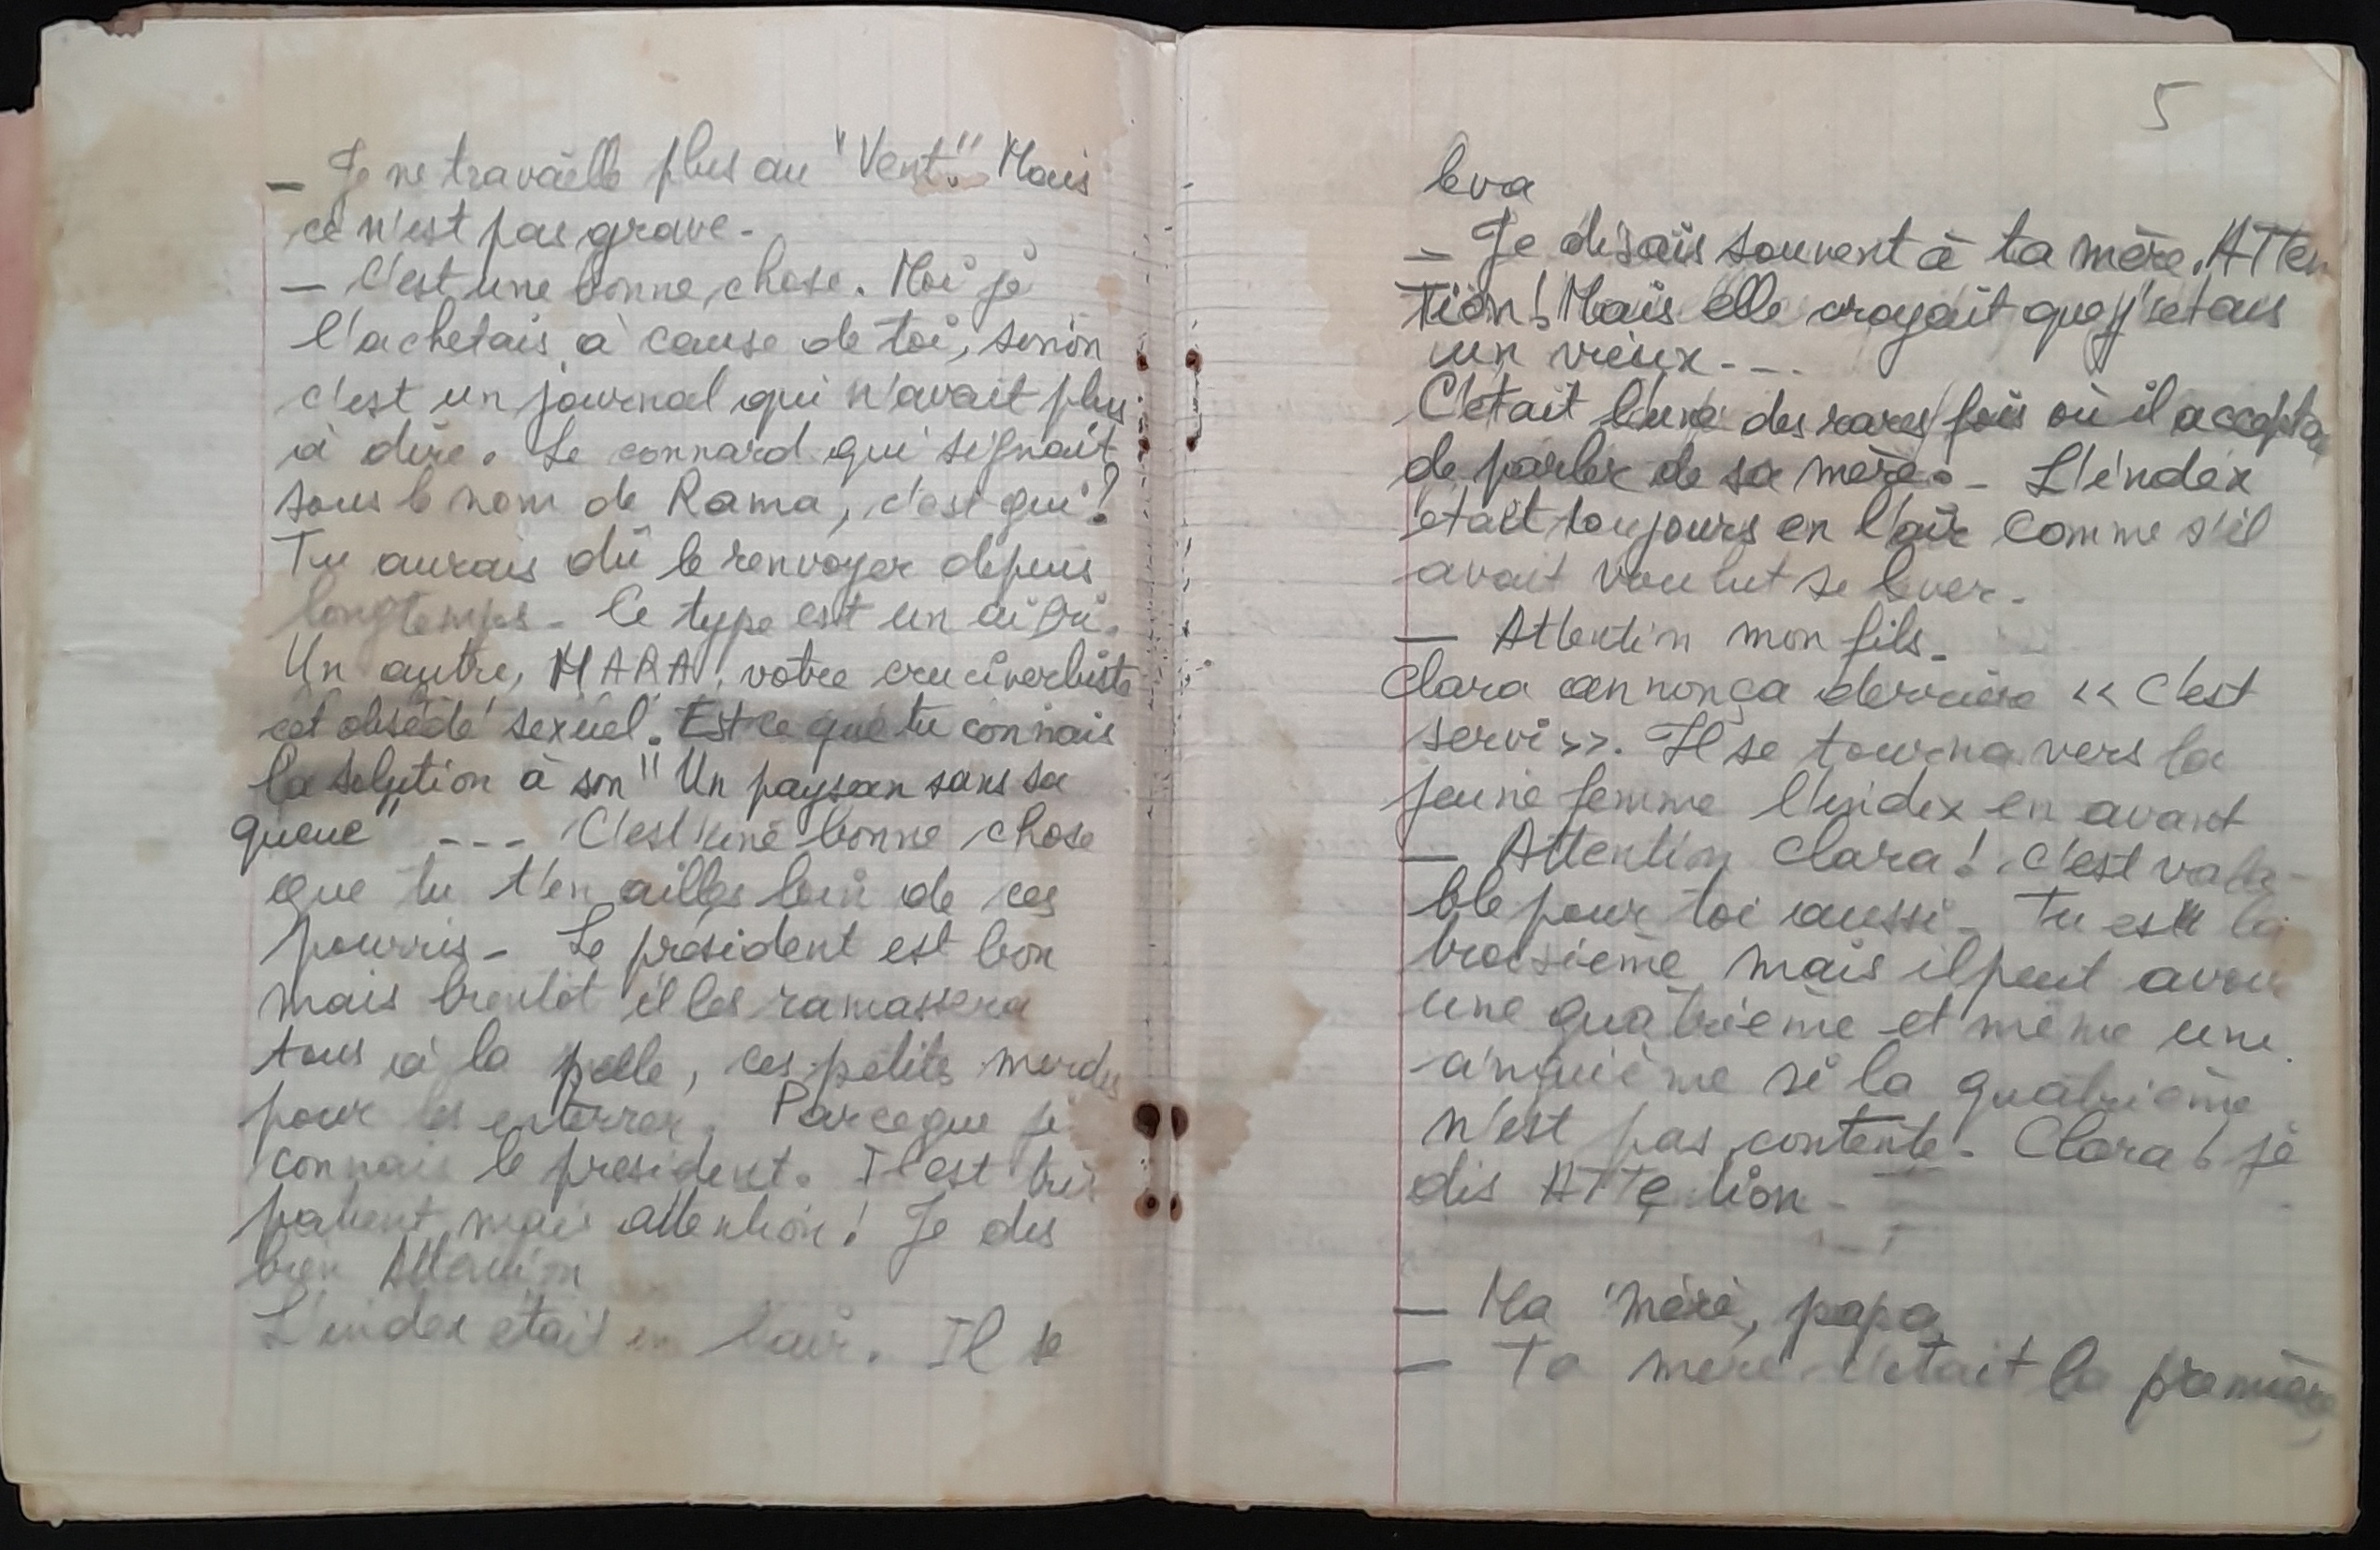 — Je ne travaille plus au "Vent". Mais
ce n'est pas grave.
— C'est une bonne chose. Moi je
l'achetais à cause de toi, sinon
c'est un journal qui n'avait plus
à dire. Le connard qui signait
sous le nom de Rama, c'est qui?
Tu aurais dû le renvoyer depuis
longtemps. Ce type est un aigri.
Un autre, MARA, votre cruciverbiste
cet obsédé sexuel. Est-ce que tu connais
la solution à son "Un paysan sans sa
queue" --- C'est une bonne chose
que tu t'en ailles loin de ces
pourris. Le président est bon
mais bientôt il les ramassera
tous à la pelle, ces petits merdes
pour les enterrer. Parceque je
connais le president. Il est très
patient, mais attention! Je dis
bien Attention
L'index etait en l'air. Il se
5
leva
— Je disais souvent à ta mère. ATTen
Tion! Mais elle croyait que j'etais
un vieux---.
C'était l'une des rares fois où il accepta
de parler de sa mère. L'index
était toujours en l'air comme s'il
avait voulut se lever.
— Attention mon fils.
Clara annonça derrière << C'est
servi>>. Il se tourna vers la
jeune femme l'index en avant
— Attention Clara! c'est vala-
ble pour toi aussi. Tu es la
troisième mais il peut avoir
une quatrième et même une
cinquième si la quatrième
n'est pas contente. Clara! je
dis ATTention
— Ma mère, papa
— Ta mère c'était la première,